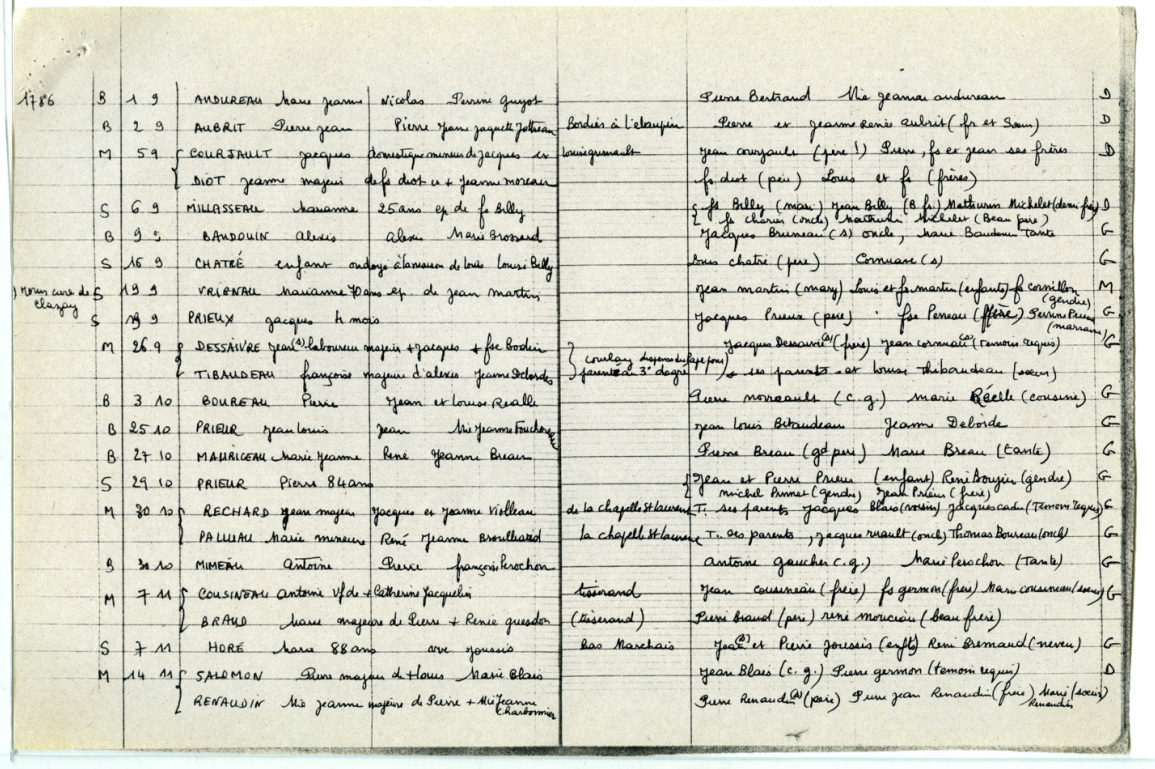 1786 B 1 9 ANDUREAU Marie Jeanne Nicolas Perrine Guyot Pierre Bertrand Mie Jeanne andureau D
B 2 9 AUBRIT Pierre Jean Pierre Jeanne Jaquette Bordier à Pierre et Jeanne Renée Aubrit (fr et Sœur) D
M 5 9 COURJAULT Jacques domestique mineur de Jacques et Jean courjault (père) Pierre, fs et Jean ses frères D
DIOT Jeanne majeur de fs diot et + Jeanne moreau fs diot (père) Louis et fs (frères)
S 6 9 MILLASSEAU Marianne 25 ans ep de fs Billy fs Billy (mari) Jean Billy (B fr) Mathurin Michelet (demi fr) D
fs charin (oncle) Mathurin Michelet (Beau père)
B 9 9 BAUDOUIN Alexis Alexis Marie Brossard Jacques Bruneau (s) oncle, Marie Baudouin Tante G
S 16 9 CHATRÉ enfant ondoyé à la maison de Louis Louise Billy Louis chatré (père) Cornuau (s) G
) cure de Clazay S 19 9 VRIGNAU Marianne 70 ans ep. de Jean martin Jean martin (mary) Louis et fs martin (enfants) fs cornillon (gendre) M
S 19 9 PRIEUX Jacques 4 mois Jacques Prieux (père) fse Peneau Perrine Prieux (marraine) G
M 26 9 DESSAIVRE Jean (s) laboureur majeur + Jacques + fse Bodin Jacques Dessaivre (s) (frère) Jean cornuau (s) (temoins requis) G
TIBAUDEAU françoise majeure d'alexis Jeanne courlay dispense du pape pour parenté au 3° degré ses parents et Louise Thibaudeau (sœur)
B 3 10 BOUREAU Pierre Jean et Louise Réalle Pierre (c.g.) Marie Réelle (cousine) G
B 25 10 PRIEUR Jean Louis Jean Mie Jeanne Jean Louis Bitaudeau Jeanne Deborde G
B 27 10 MAURICEAU Marie Jeanne René Jeanne Breau Pierre Breau (gd père) Marie Breau (tante) G
S 29 10 PRIEUR Pierre 84 ans Jean et Pierre Prieur (enfant) René Boujin (gendre) G
michel (gendre) Jean Prieur (frère)
M 30 10 RECHARD Jean majeur Jacques et Jeanne Violleau de la chapelle St Laurent T. ses parents Jacques Blais (voisin) Jacques cadu (Temoin requis) G
PALLUAU Marie mineure René Jeanne Brouillard la chapelle St Laurent T.. ses parents, Jacques ruault (oncle) Thomas Boureau (oncle) G
B 30 10 MIMEAU Antoine Pierre françoise Perochon antoine gaucher c.g.) Marie Perochon (Tante) G
M 7 11 COUSINEAU Antoine vf de + Catherine Jacquelin tisserand Jean cousineau (frère) fs germon (frère) Marie cousineau (sœur) G
BRAUD Marie majeure de Pierre + Renée guesdon (tisserand) Pierre Braud (père) rené (beau frère)
S 7 11 HORÉ Marie 88 ans vve Joussis Bas Marchais Jean (s) et Pierre Joussis (enfts) René Bremaud (neveu) G
M 14 11 SALOMON Pierre majeur de + Louis Marie Blais Jean Blais (c.g.) Pierre germon (temoin requis) D
RENAUDIN Mie Jeanne majeure de Pierre + Mie Jeanne Charbonnier Pierre Renaudin (s) (père) Pierre Jean Renaudin (frère) Marie Renaudin (sœur)